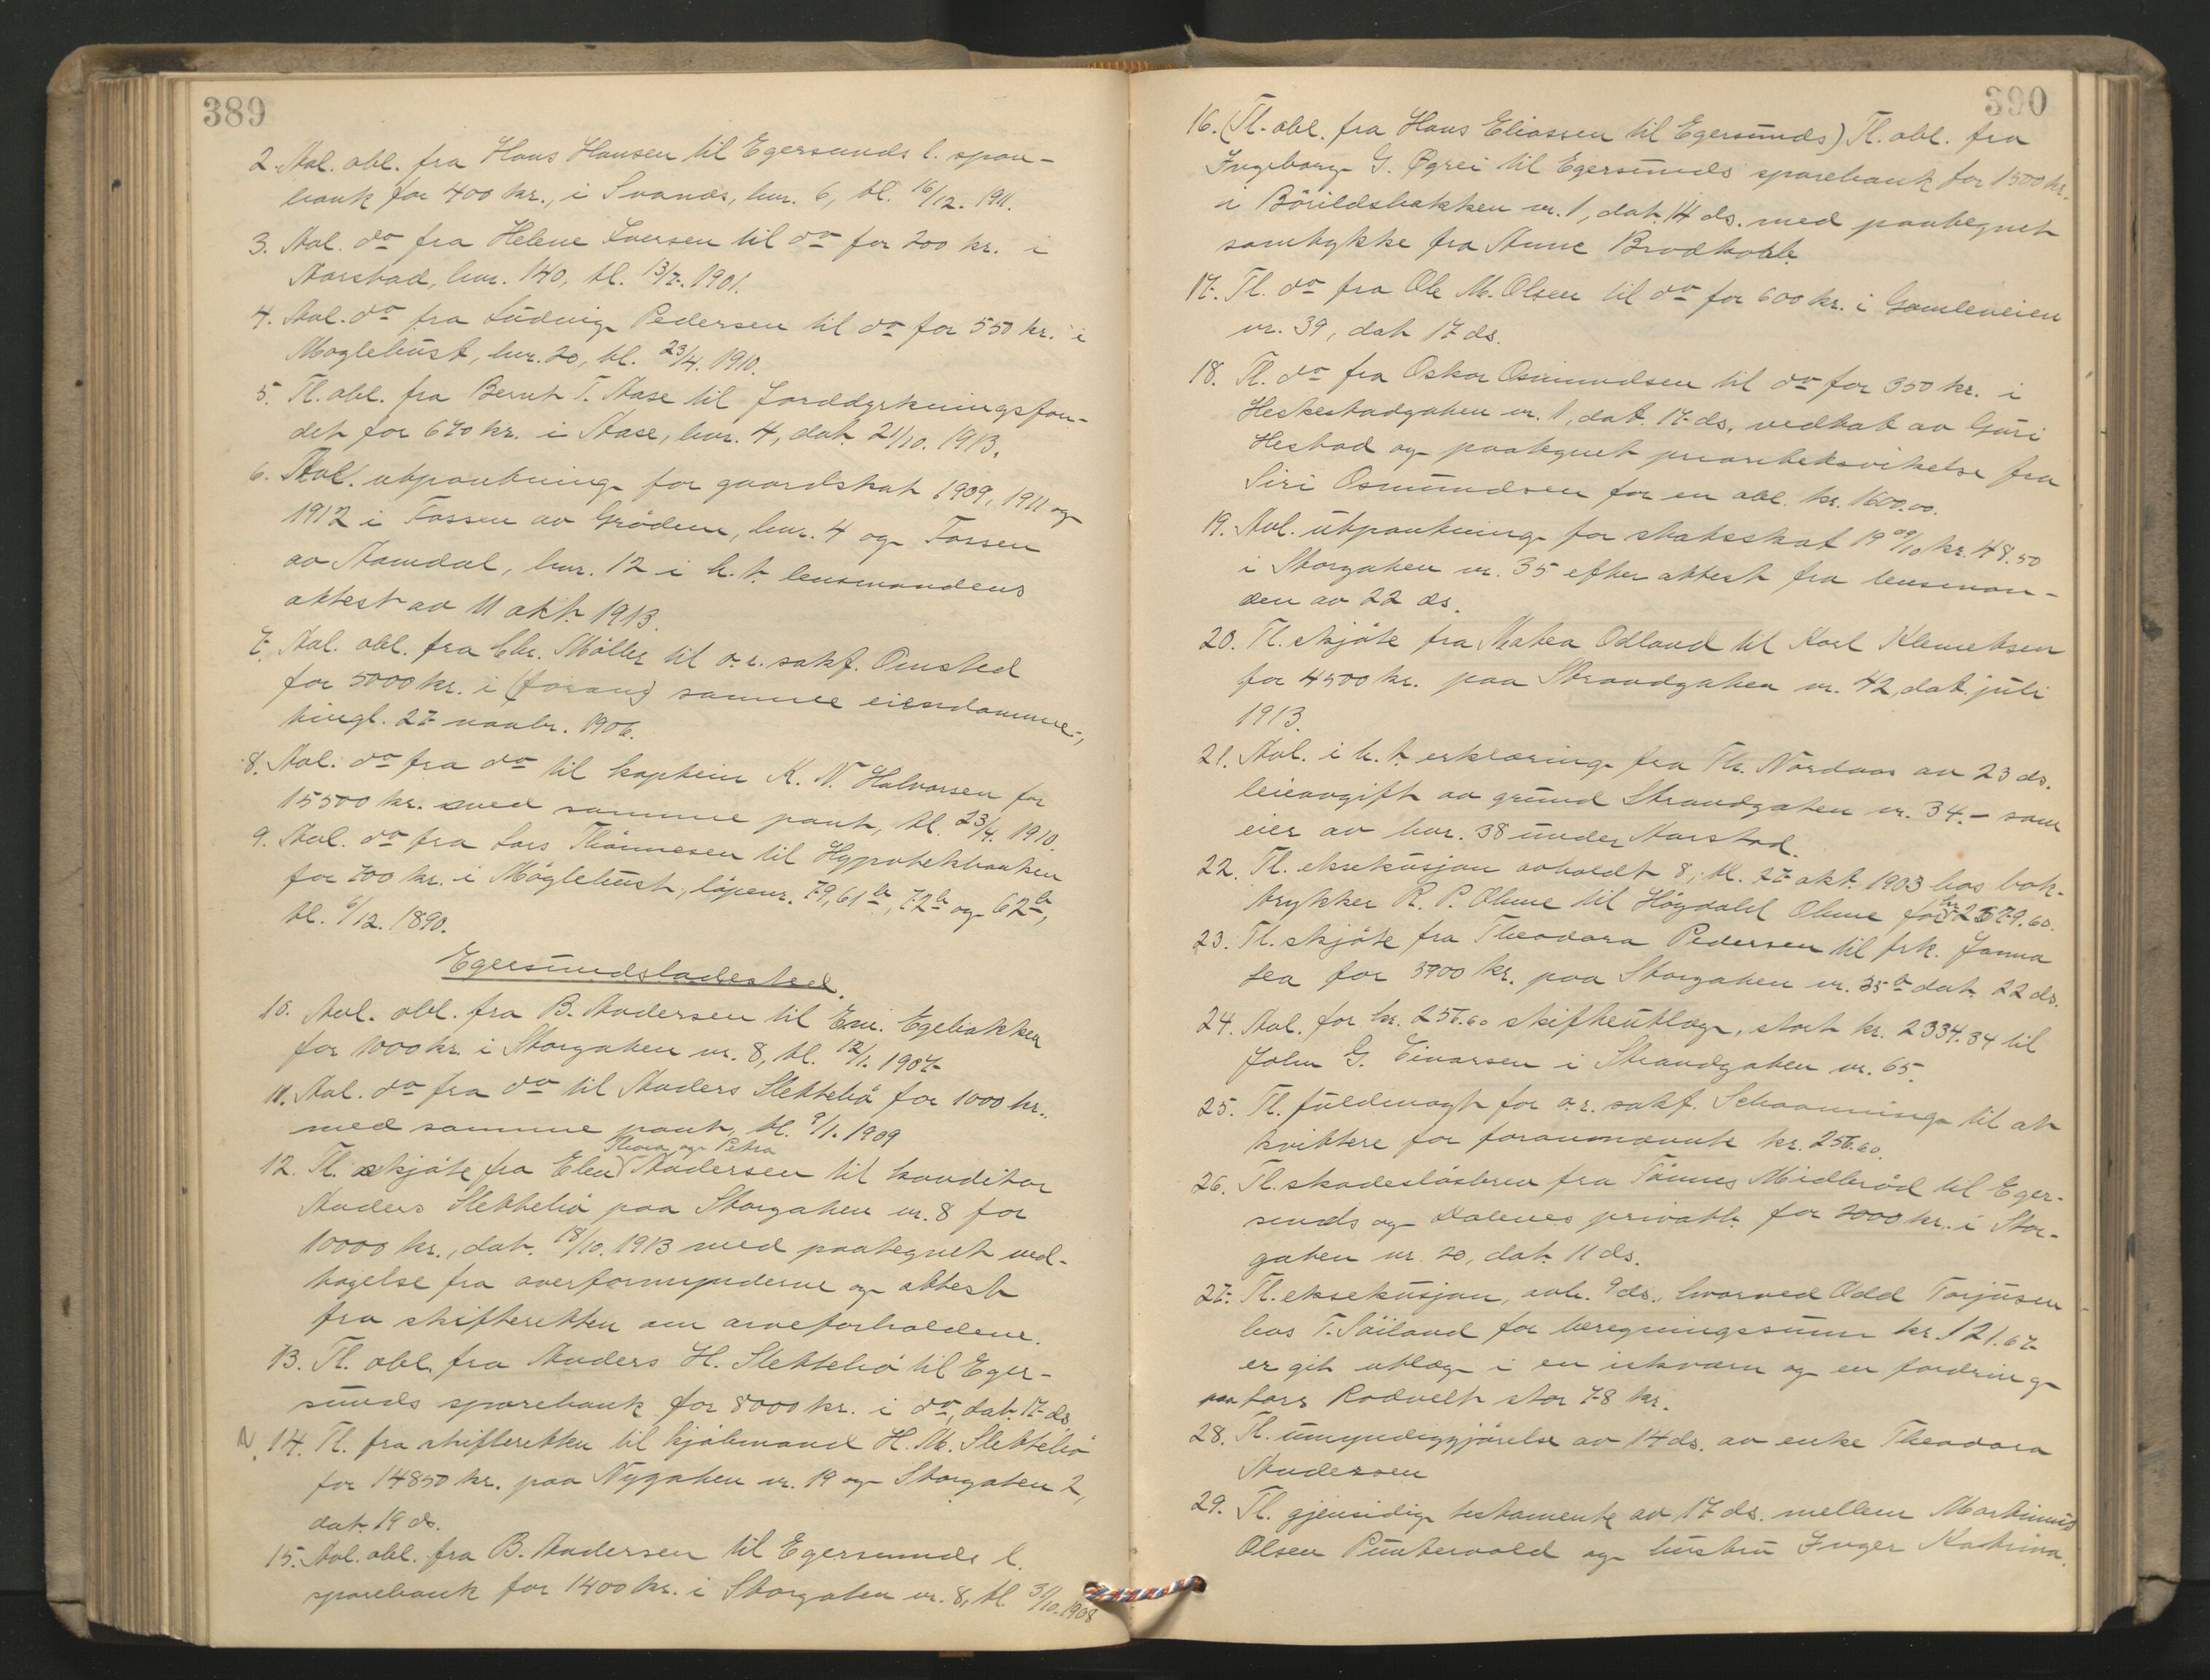 389
2. Avl. obl. fra Hans Hansen til Egersunds l. spare-
bank for 400 kr., i Svanes, bnr. 6, tl. 16/12. 1911.
3. Avl. do fra Helene Iversen til do for 200 kr. i
Aarstad, bnr. 140, tl. 13/7. 1901.
4. Avl. do fra Ludvig Pedersen til do for 550 kr. i
Møglehust, bnr. 20, tl. 23/4. 1910.
5. Tl. obl. fra Bernt T. Aase til Jorddyrkningsfon-
det for 670 kr. i Aase, bnr. 4, dat. 21/10. 1913.
6. Avl. utpantning for gaardskat 1909, 1911 og
1912 i Fossen av Grødem, bnr. 4 og Fossen
av Aamdal, bnr. 12 i h. t. lensmandens
attest av 11 okt. 1913.
7. Avl. obl. fra Chr. Møller til o. r. sakf. Omsted
for 5000 kr. i (forans) samme eiendomme,
tingl. 27 novbr. 1906.
8. Avl. do fra do til kaptein K. N. Halvorsen for
15500 kr. med samme pant, tl. 23/4. 1910.
9. Avl. do fra Lars Thönnesen til Hypotekbanken
for 700 kr. i Möglehust, løpenr. 79, 61 b, 72 b og 62 b,
tl. 6/12. 1890.
Egersundsladested.
10. Avl. obl. fra B. Andersen til Eni. Egebakken
for 1000 kr. i Storgaten nr. 8, tl. 12/1. 1907
11. Avl. do fra do til Anders Slettebö for 1000 kr.
med samme pant, tl. 9/1. 1909
Thora og Petra
12. Tl. skjöte fra Elen Andersen til konditor
Anders Slettebö paa Storgaten nr. 8 for
10000 kr., dat. 18/10. 1913 med paategnet ved-
tagelse fra overformynderne og attest
fra skifteretten om arveforholdene.
13. Tl. obl. fra Anders H. Slettebö til Eger-
sunds sparebank for 8000 kr. i do, dat. 17 ds
N. 14. Tl. fra skifteretten til kjöbmand H. M. Slettebö
for 14850 kr. paa Nygaten nr. 19 og Storgaten 2,
dat. 19 ds.
15. Avl. obl. fra B. Andersen til Egersunds l.
sparebank for 1400 kr. i Storgaten nr. 8, tl. 31/10. 1908
390
16. (Tl. obl. fra Hans Eliassen til Egersunds) Tl. obl. fra
Ingeborg G. Øgrei til Egersunds sparebank for 1500 kr.
i Börildsbakken nr. 1, dat. 14 ds. med paategnet
samtykke fra Anne Brodkorb.
17. Tl. do fra Ole M. Olsen til do for 600 kr. i Gamleveien
nr. 39, dat 17 ds.
18. Tl. do fra Oskar Osmundsen til do for 350 kr. i
Heskestadgaten nr. 1, dat. 17 ds. vedtat av Guri
Hestad og paategnet prioritetsvikelse fra
Siri Osmundsen for en obl. kr. 1600.00.
19. Avl. utpantning for statsskat 1909/10 kr. 48.50
i Storgaten nr. 35 efter attest fra lensman-
den av 22 ds.
20. Tl. skjöte fra Thabea Odland til Karl Klemetsen
for 4500 kr. paa Strandgaten nr. 42, dat. juli
1913.
21. Avl. i h. t. erklæring fra Th. Nordaas av 23 ds.
leieavgift av grund Strandgaten nr. 34. – som
eier av bnr. 38 under Aarstad.
22. Tl. eksekusjon avholdt 8, tl. 27 okt. 1903 hos bok-
trykker R. P. Ohme til Høydahl Ohme for kr 2579.60.
23. Tl. skjöte fra Theodora Pedersen til frk. Janna
Lea for 3900 kr. paa Storgaten nr. 35 b dat. 22 ds.
24. Avl. for kr. 256.60 skifteutlæg, stort kr. 2334.34 til
John G. Einarsen i Strandgaten nr. 65.
25. Tl. fuldmagt for o. r. sakf. Schaanning til at
kvittere for forannævnte kr. 256.60.
26. Tl. skadesløsbrev fra Tönnes Midbröd til Eger-
sunds og Dalenes privatb. for 2000 kr. i Stor-
gaten nr. 20, dat. 11 ds.
27. Tl. eksekusjon, avh. 9 ds., hvorved Odd Torjusen
hos T. Söiland for beregningssum kr. 121.67
er git utlæg i en iskværn og en fordring
paa Lars Rodvelt stor 78 kr.
28. Tl. umyndiggjörelse av 14 ds. av enke Theodora
Andersen
29. Tl. gjensidig testamente av 17 ds. mellem Martinius
Olsen Puntervold og hustru Inger Katrina.